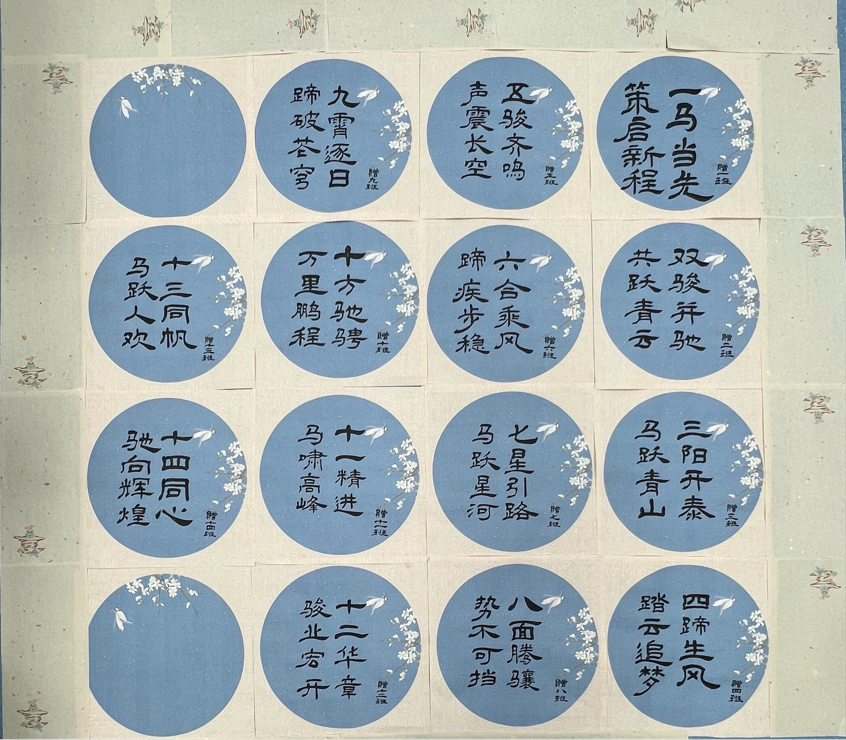 一马当先
策启新程
赠一班
双骏并驰
共跃青云
赠二班
三阳开泰
马跃青山
赠三班
四蹄生风
踏云追梦
赠四班
五骏齐鸣
声震长空
赠五班
六合乘风
蹄疾步稳
赠六班
七星引路
马跃星河
赠七班
八面腾骧
势不可挡
赠八班
九霄逐日
蹄破苍穹
赠九班
十方驰骋
万里鹏程
赠十班
十一精进
马啸高峰
赠十一班
十二华章
骏业宏开
赠十二班
十三同帆
马跃人欢
赠十三班
十四同心
驰向辉煌
赠十四班